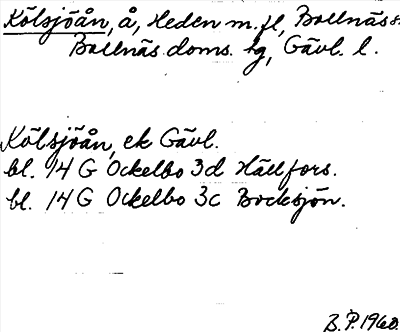 Kölsjöån, å, Heden m.fl, Bollnäs s.
Bollnäs doms. hg, Gävl. l.
Kölsjöån, ek Gävl.
bl. 14 G Ockelbo 3d Hällfors.
bl. 14 G Ockelbo 3c Bocksjön.
B.P. 1960.